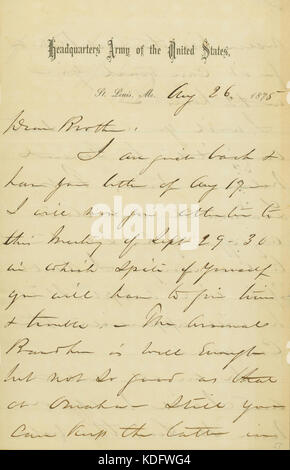 Headquarters Army of the United States.
St. Louis, Mo. Aug 26, 1875
Dear Broth.
I am just back &
have your letter of Aug 19 -
I will now give attention to
this Meeting of Sept 29-30
in which spite of Yourself
you will have to give time
& trouble. - The Arsenal
Band here is well Enough
but not so good as that
at Omaha - Still you
can keep the latter in
alamy
Image ID: KWFG74
www.alamy.com